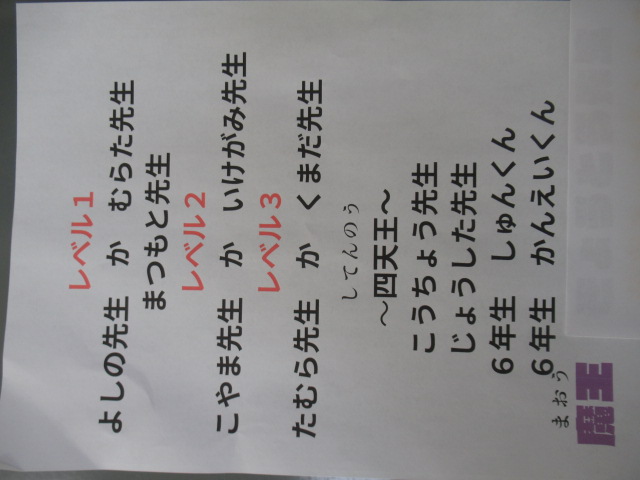 レベル１
よしの先生　か　むらた先生
まつもと先生
レベル２
こやま先生　か　いけがみ先生
レベル３
たむら先生　か　くまだ先生
してんのう
～四天王～
こうちょう先生
じょうした先生
６年生　しゅんくん
６年生　かんえいくん
まおう
魔王